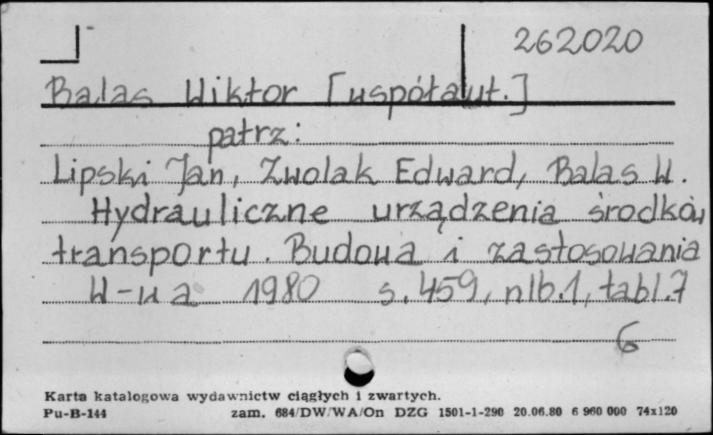 262020
Balas Wiktor [współaut.]
patrz:
Lipski Jan, Zwolak Edward, Balas W.
Hydrauliczne urządzenia środków
transportu. Budowa i zastosowania
W-wa 1980 s. 459, nlb. 1, tabl. 7
6
Karta katalogowa wydawnictw ciągłych i zwartych.
Pu-B-144 zam. 684/DW/WA/On DZG 1501-1-290 20.06.80 6 960 000 74x120